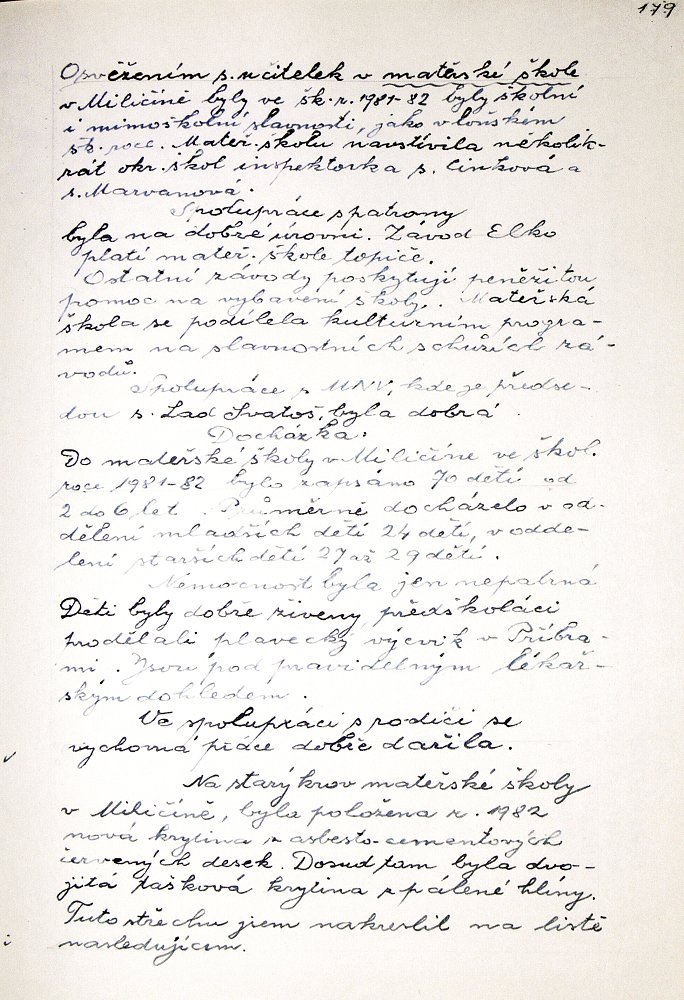 179
Osvěžením s. učitelek v mateřské škole
v Miličíně byly ve šk. r. 1981-82 byly školní
i mimoškolní slavnosti, jako v loňském
šk. roce. Mateř. školu navštívila několik-
rát okr. škol inspektorka s. Cinková a
s. Marvanova.
Spolupráce s patrony
byla na dobré úrovni. Závod Elko
platí mateř. škole topiče.
Ostatní závody poskytují peněžitou
pomoc na vybavení školy. Mateřská
škola se podílela kulturním progra-
mem na slavnostních schůzích zá-
vodů.
Spolupráce s MNV, kde je předse-
dou s. Lad Svatoš, byla dobrá.
Docházka:
Do mateřské školy v Miličíne ve škol.
roce 1981-82 bylo zapsáno 70 dětí od
2 do 6 let. Průměrně docházelo v od-
dělení mladších dětí 24 dětí, v odde-
lení starších dětí 27 až 29 dětí.
Nemocnost byla jen nepatrná
Děti byly dobře živeny, předškoláci
prodělali plavecký výcvik v Příbra-
mi. Jsou pod pravidelným lékař-
ským dohledem.
Ve spolupráci s rodiči se
vychovná práce dobře dařila.
Na starý krov mateřské školy
v Miličíně, byla položena r. 1982
nová krytina z asbesto-cementových
červených desek. Dosud tam byla dvo-
jitá tašková krytina z pálené hlíny.
Tuto střechu jsem nakreslil na listě
následujícím.